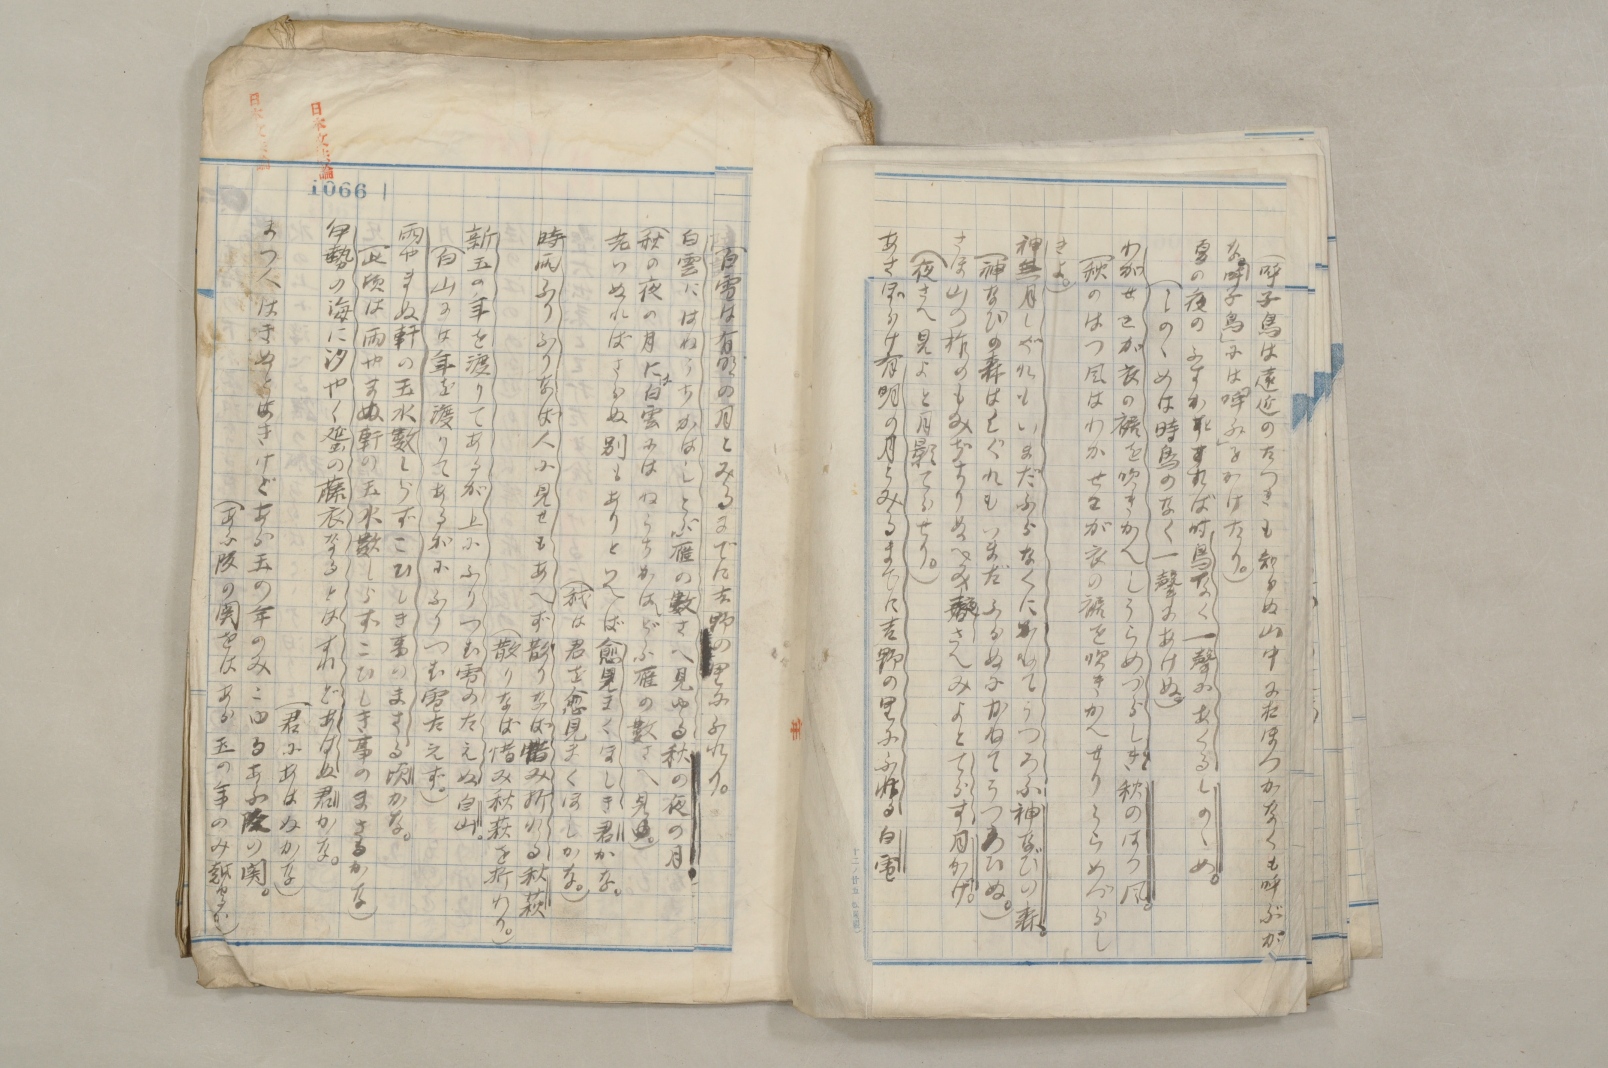 (呼子鳥は遠近のたつきも知らぬ山中におぼつかなくも呼ぶか
な。「呼子鳥」には「呼ぶ」をかけたり。)
夏の夜のふすかとすれば時鳥なく一聲にあくるしのゝめ。
(しのゝめは時鳥のなく一聲にあけぬ)
わがせこが衣の裾を吹きかへしうらめづらしき秋のはつ風。
(秋のはつ風はわがせこが衣の裾を吹きかへせりうらめづらし
きよ。)
神無月しぐれもいまだふらなくにかねてうつろふ神なびの森。
(神なびの森はしぐれもいまだふらぬにかねてうつろひぬ。)
さほ山の柞のもみぢちりぬべみ夜さへみよとてらす月かげ。
(夜さへ見よと月影てらせり。)
あさぼらけ有明の月とみるまでに吉野の里にふれる白雪
(白雪は有明の月とみるまでに吉野の里にふれり。
白雲にはねうちかはしとぶ雁の數さへ見ゆる秋の夜の月
(秋の夜の月には白雲にはねうちかはしとぶ雁の數さへ見ゆ。)
老いぬればさらぬ別もありといへば愈見まくほしき君かな。
(我は君を愈見まくほしかな。)
時雨ふりふりなば人に見せもあへず散りなば惜み折れる秋萩
(散りなば惜み秋萩を折れり。)
新玉の年を渡りてあるが上にふりつむ雪のたえぬ白山。
(白山には年を渡りてあるがにふりつむ雪たえず。)
雨やまぬ軒の玉水數しらずこひしき事のまさる頃かな。
(此頃は雨やまぬ軒の玉水數しらずこひしき事のまさるかな)
伊勢の海に汐やく蜑の藤衣なるとはすれどあはぬ君かな。
(君にあはぬかな)
まつ人はきぬときけどあら玉の年のみこゆるあふ阪の関。
(あふ阪の関をはあら玉の年のみ越ゆるか)
1066
日本文法論
日本文法論